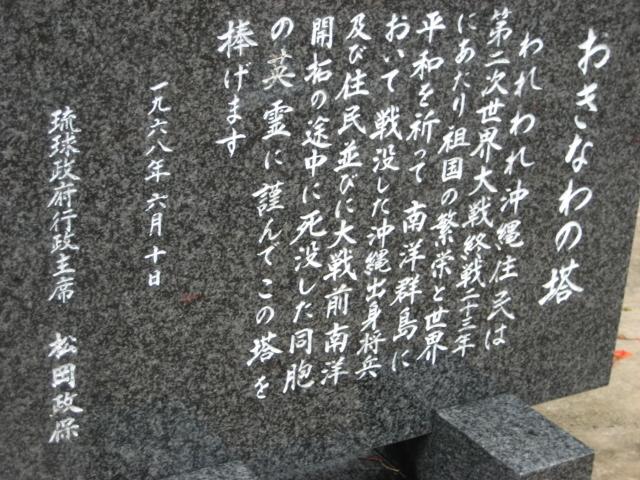 おきなわの塔
われわれ沖縄住民は
第二次世界大戦終戦二十三年
にあたり祖国の繁栄と世界
平和を祈って 南洋群島に
おいて 戦没した沖縄出身将兵
及び住民並びに大戦前南洋
開拓の途中に死没した同胞
の英霊に謹んでこの塔を
捧げます
一九六八年六月十日
琉球政府行政主席 松岡政保